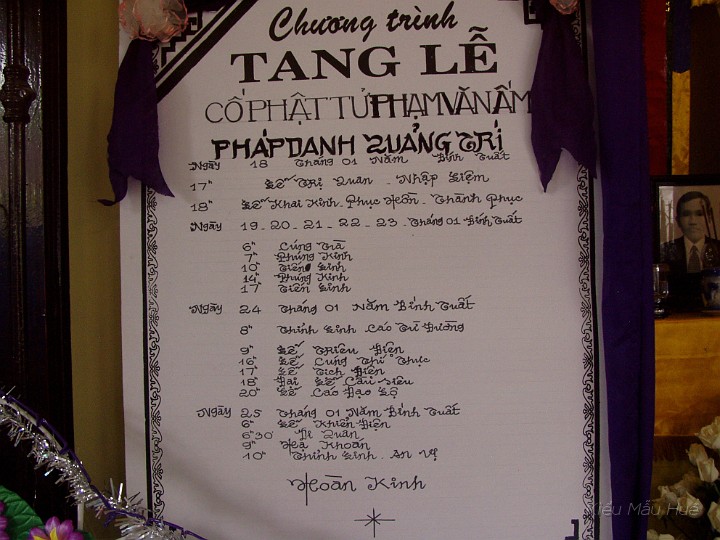 Chương trình
TANG LỄ
CỐ PHẬT TỬ PHẠM VĂN ẤM
PHÁP DANH QUẢNG TRÍ
Ngày 18 Tháng 01 Năm Bính Tuất
17" Lễ Trị Quan - Nhập Liệm
18" Lễ Khai Kinh - Phục Hồn - Thành Phục
Ngày 19-20-21-22-23-Tháng 01 Bính Tuất
6" Cúng Trà
7" Phúng Kinh
10" Tiến Linh
14" Phúng Kinh
17" Tiến Linh
Ngày 24 Tháng 01 Năm Bính Tuất
8" Thỉnh Linh Cáo Từ Đường
9" Lễ Triêu Điện
16" Lễ Cung Thí Thực
17" Lễ Tịch Điện
18" Đại Lễ Cầu Siêu
20" Lễ Cáo Đạo Lộ
Ngày 25 Tháng 01 Năm Bính Tuất
6" Lễ Khiển Điện
6"30' Di Quan
9" Hạ Khoán
10" Thỉnh Linh - An Vị
Hoàn Kinh
Kiểu Mẫu Huế